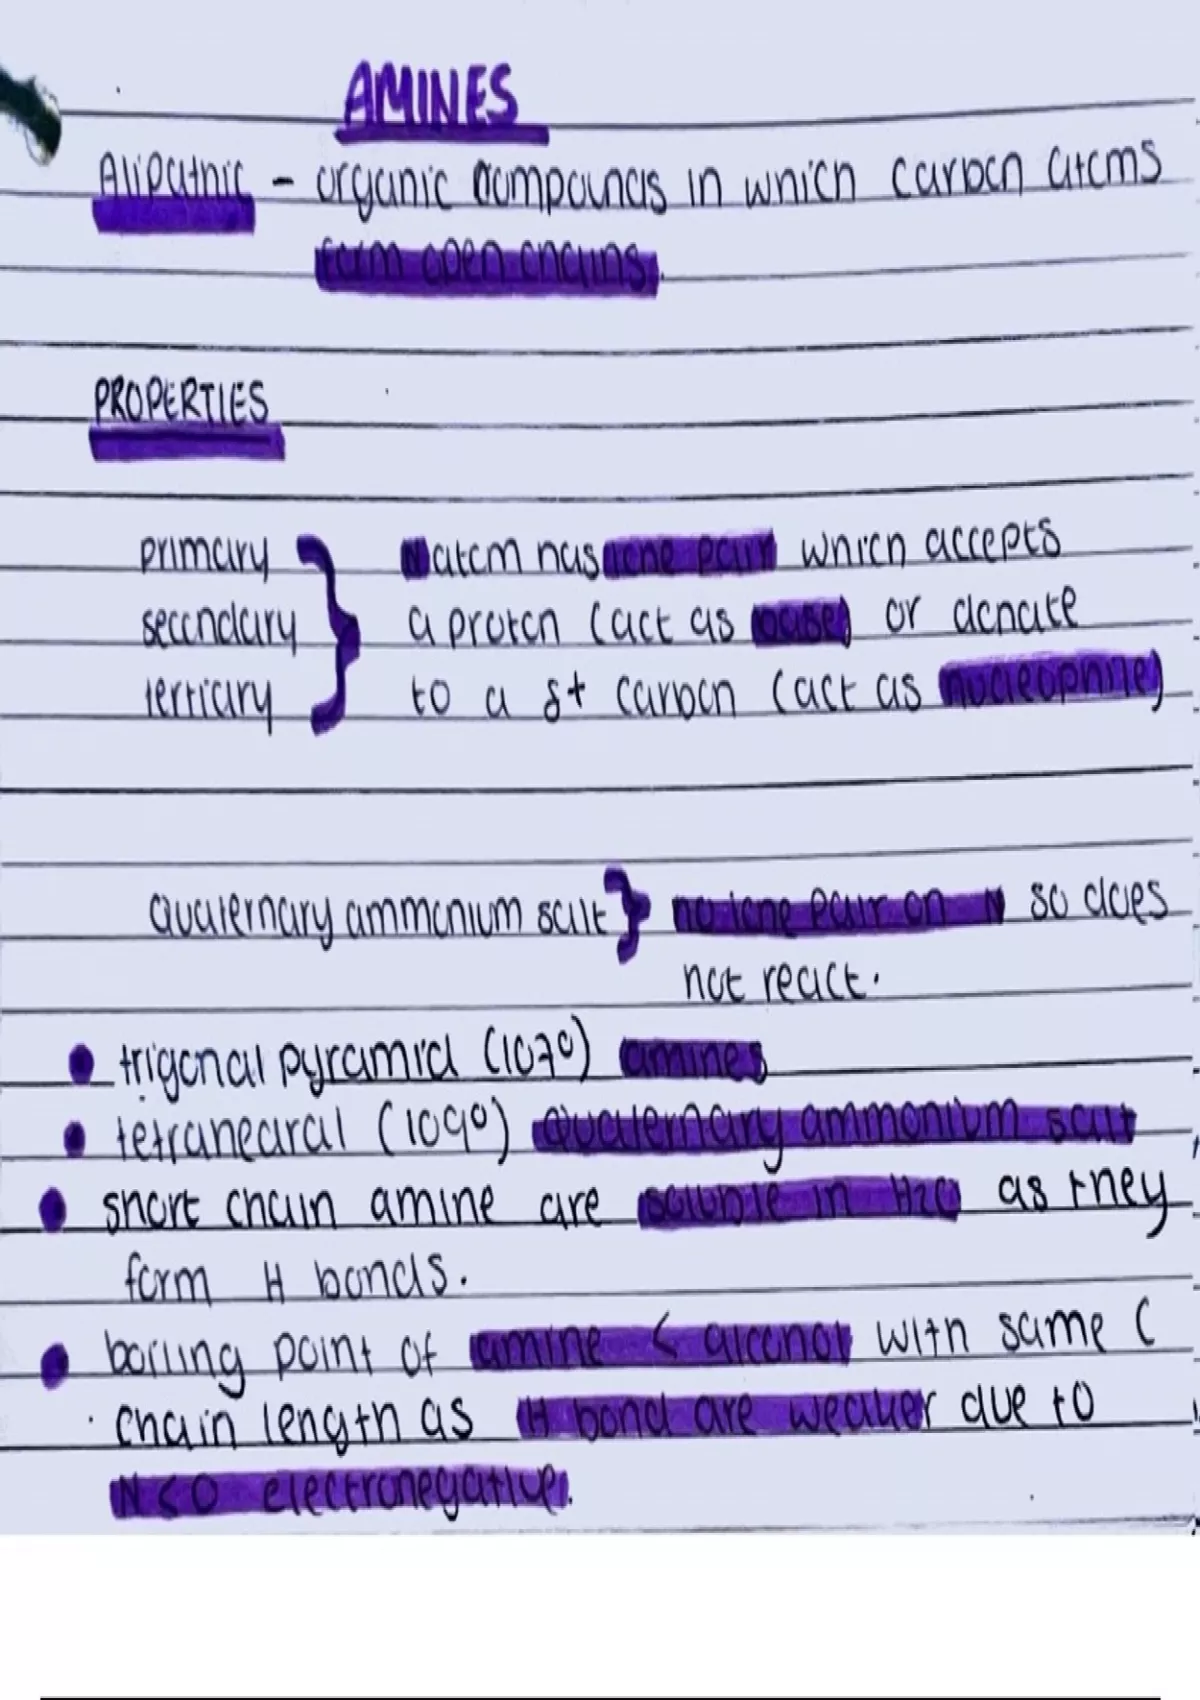 AMINES
Alipathic - organic compounds in which carbon atoms
form open chains.
PROPERTIES
primary } N atom has lone pair which accepts
secondary a proton (act as base) or donate
tertiary to a δ+ carbon (act as nucleophile)
Quaternary ammonium salt } no lone pair on N so does
not react.
• trigonal pyramid (107°) amines
• tetrahedral (109°) Quaternary ammonium salt
• short chain amine are soluble in H2O as they
form H bonds.
• boiling point of amine < alcohol with same C
chain length as H bond are weaker due to
N<O electronegative.